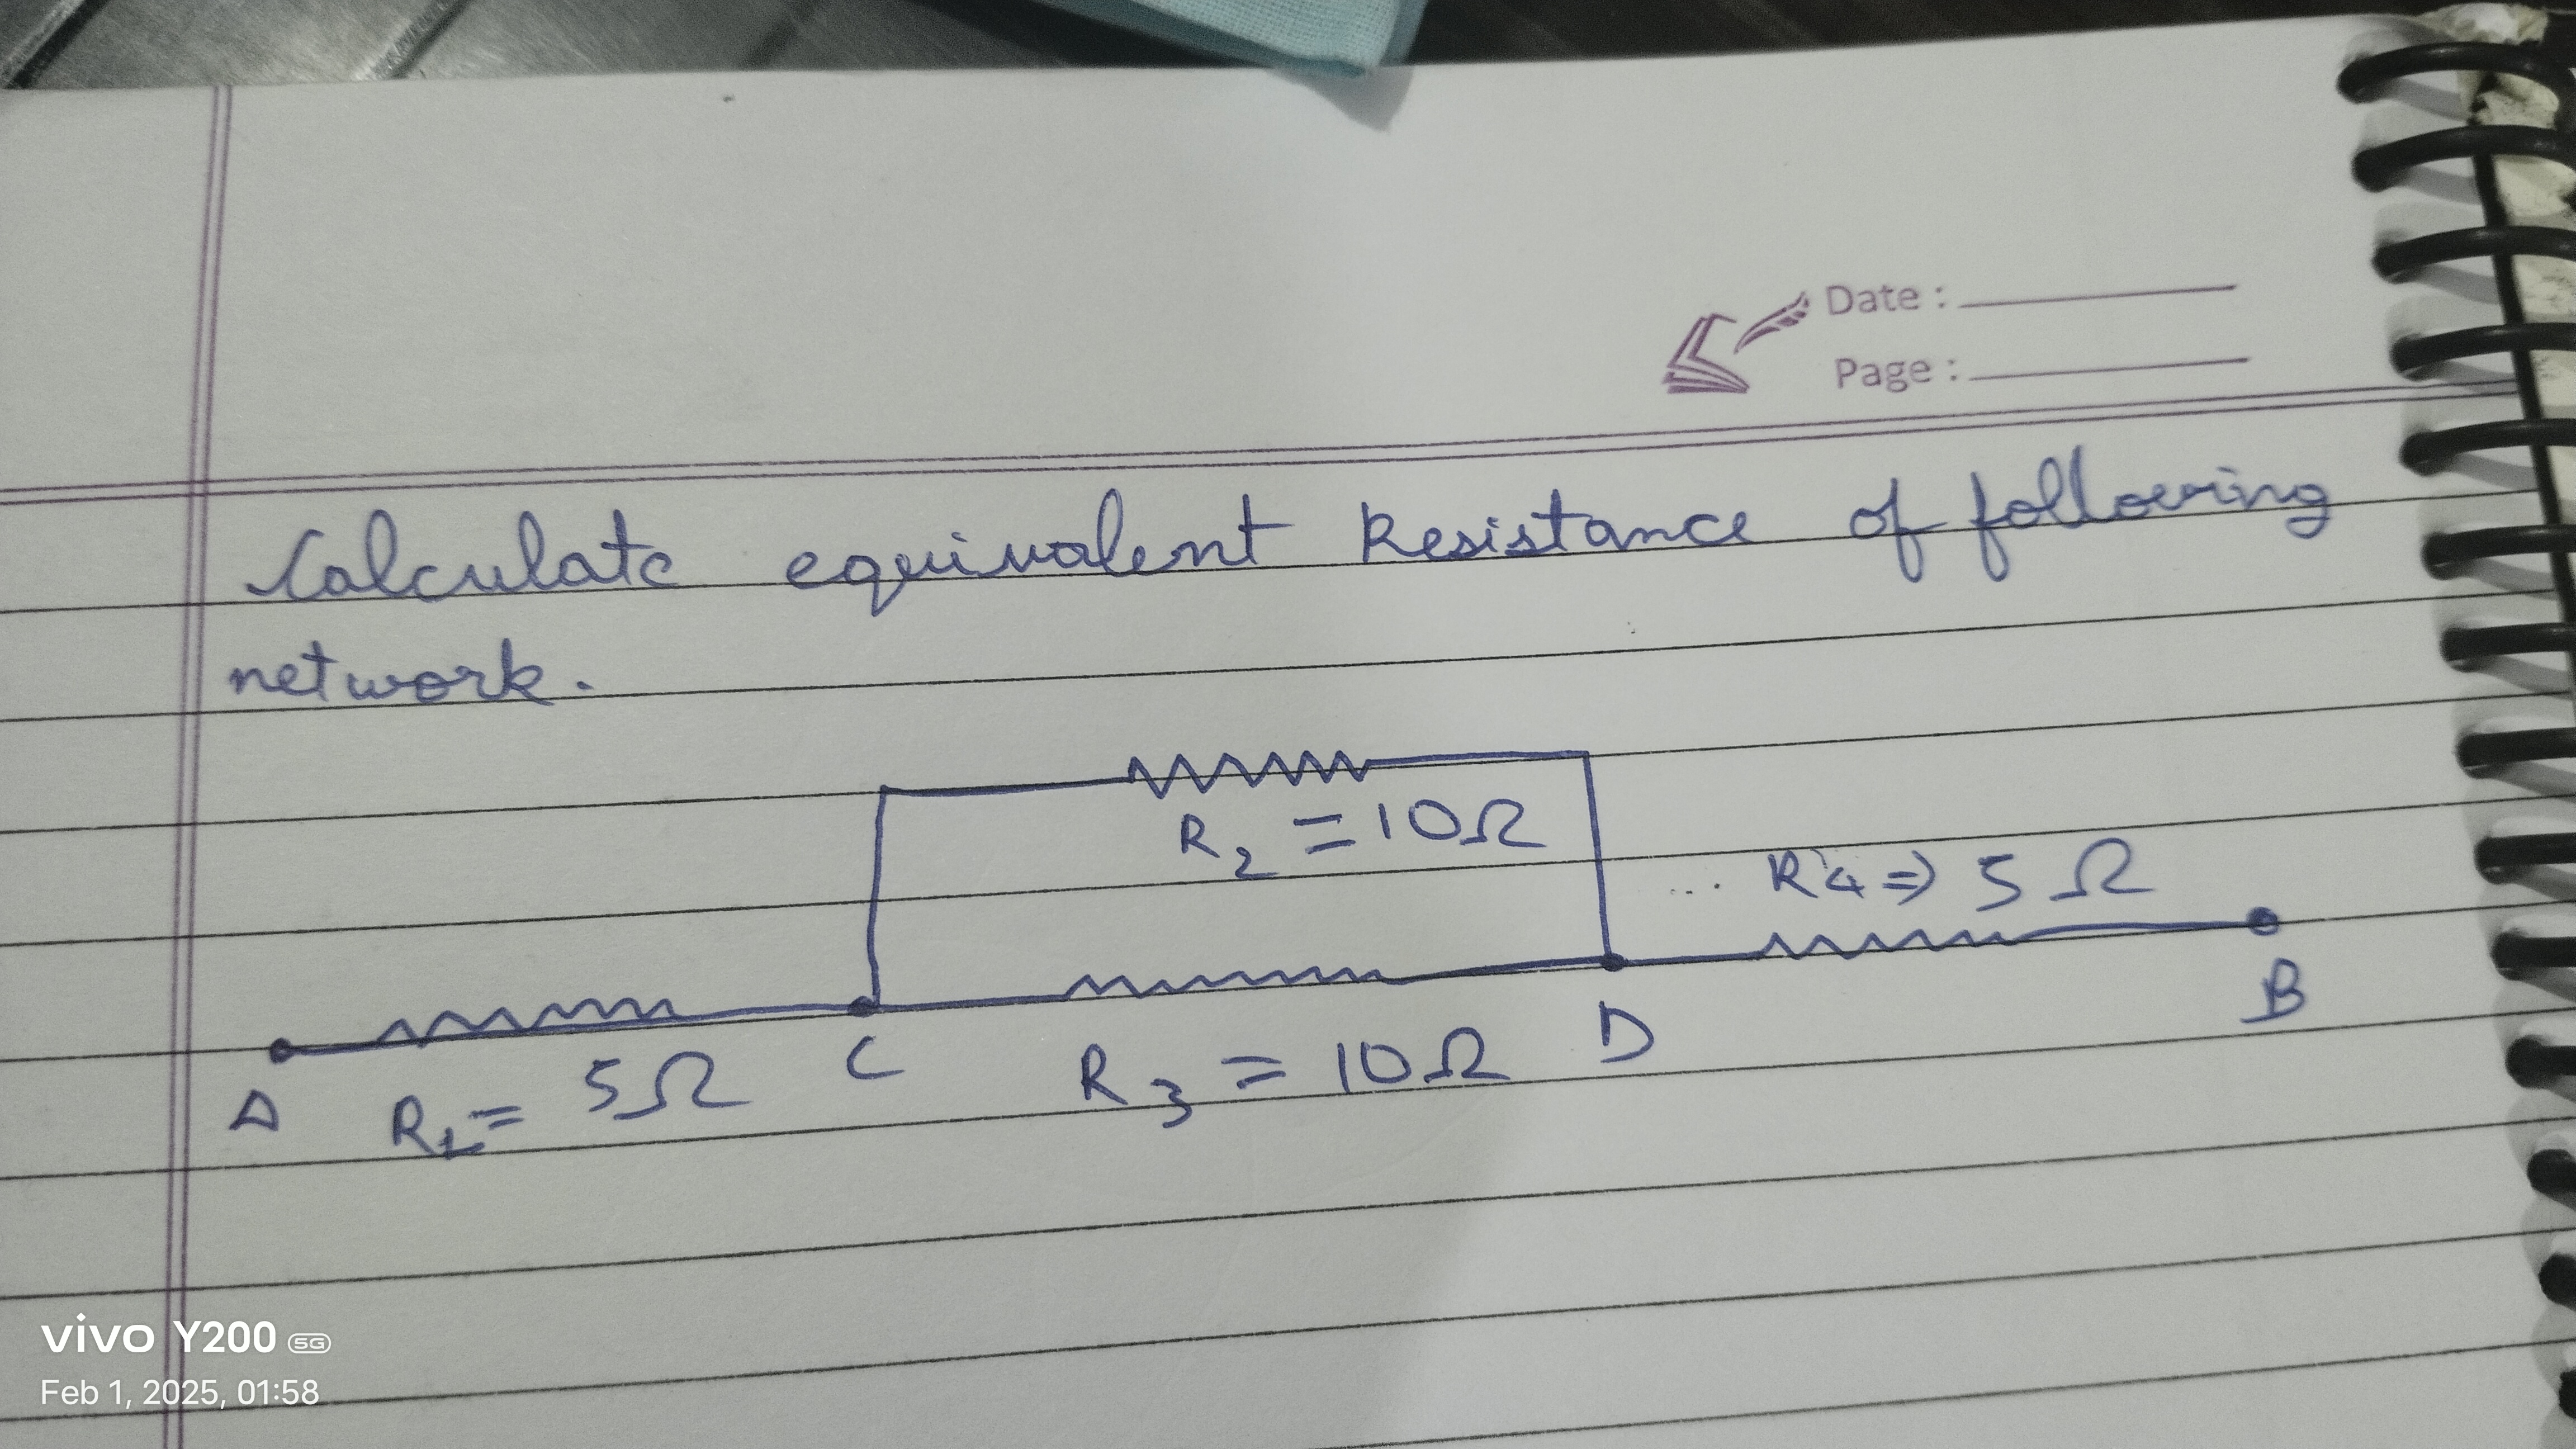 Date :
Page :
Calculate equivalent Resistance of following
network.
R2 = 10Ω
R4 => 5 Ω
A
R1 = 5Ω
C
R3 = 10Ω
D
B
vivo Y200 5G
Feb 1, 2025, 01:58